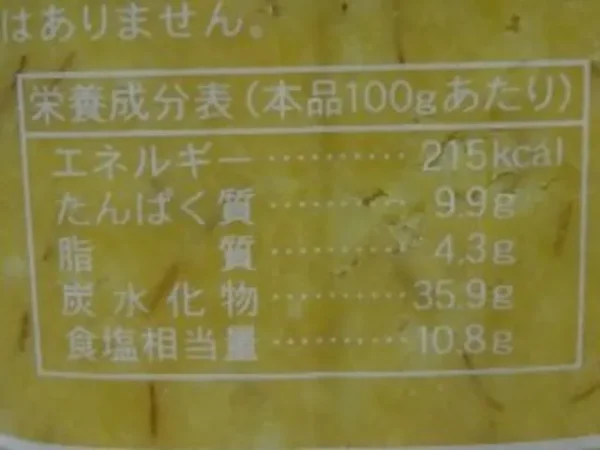 はありません。
栄養成分表(本品100gあたり)
エネルギー………… 215kcal
たんぱく質………… 9.9g
脂　　質………… 4.3g
炭水化物………… 35.9g
食塩相当量………… 10.8g